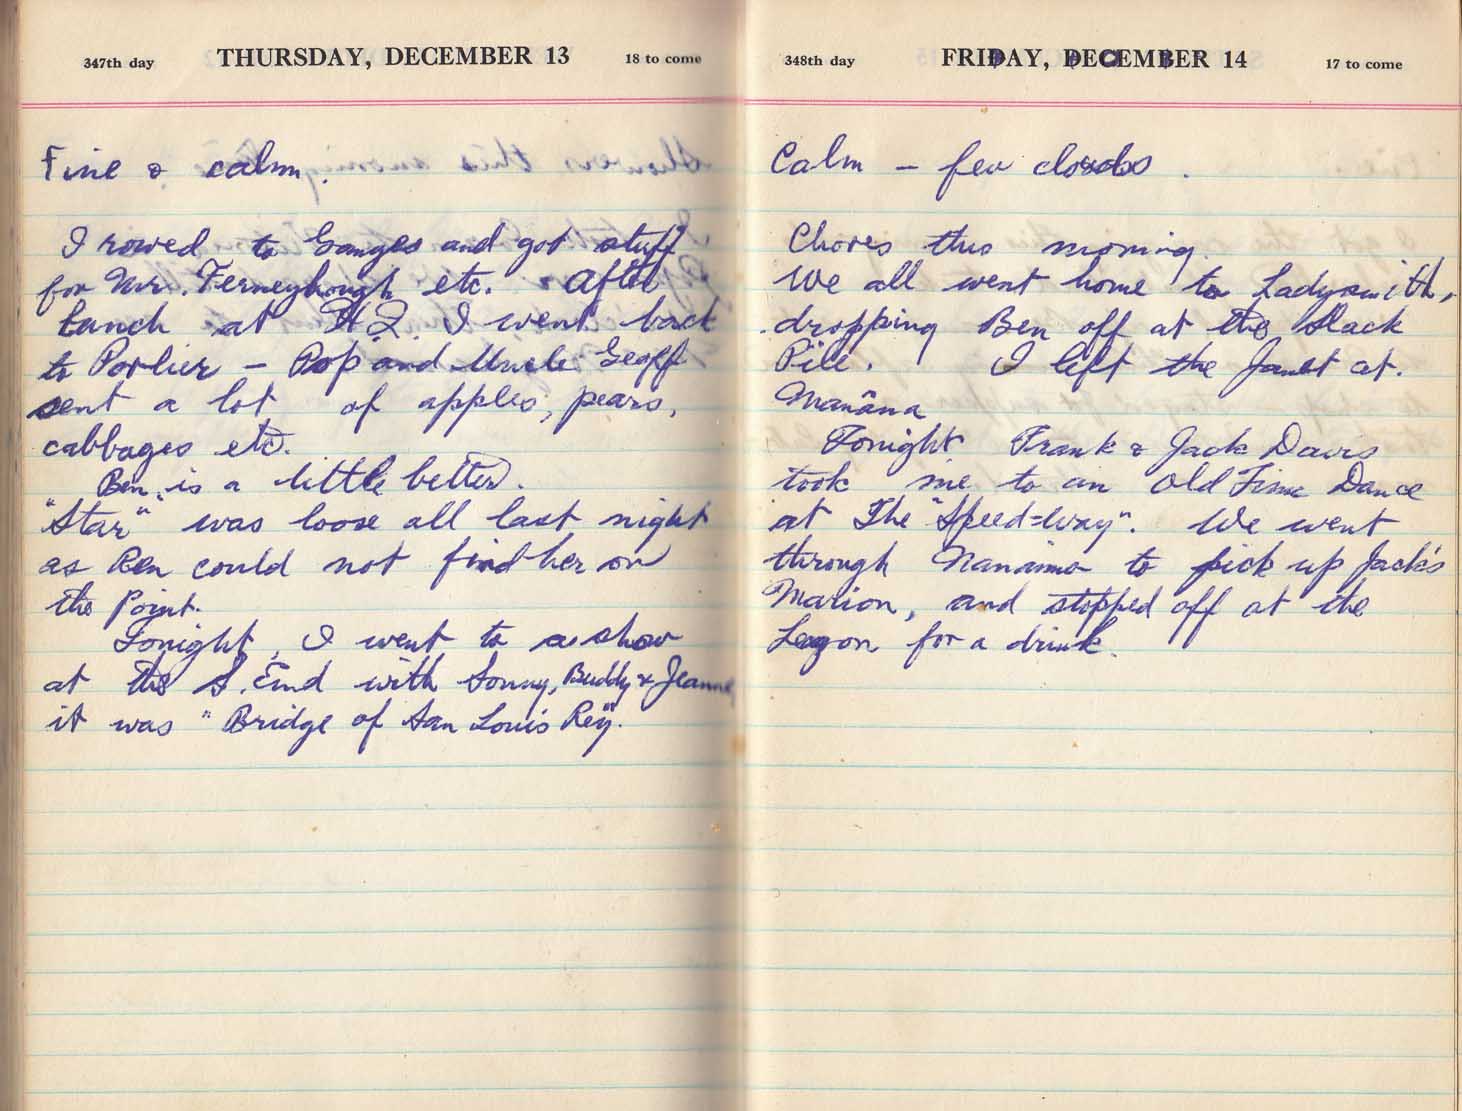 347th day THURSDAY, DECEMBER 13 18 to come
Fine & calm.
I rowed to Ganges and got stuff
for Mr. Ferneyhough etc. After
lunch at H.Q. I went back
to Porlier – Pop and Uncle Geoff
sent a lot of apples, pears,
cabbages etc.
Ben is a little better.
"Star" was loose all last night
as Ben could not find her on
the Point.
Tonight, I went to a show
at the S. End with Sonny, Buddy & Jeanne
it was "Bridge of San Louis Rey".
348th day FRIDAY, DECEMBER 14 17 to come
Calm – few clouds.
Chores this morning.
We all went home to Ladysmith,
dropping Ben off at the Slack
Pile. I left the Janet at.
Manãna
Tonight Frank & Jack Davis
took me to an Old Time Dance
at The "Speed=Way". We went
through Nanaimo to pick up Jack's
Marion, and stopped off at the
for a drink.